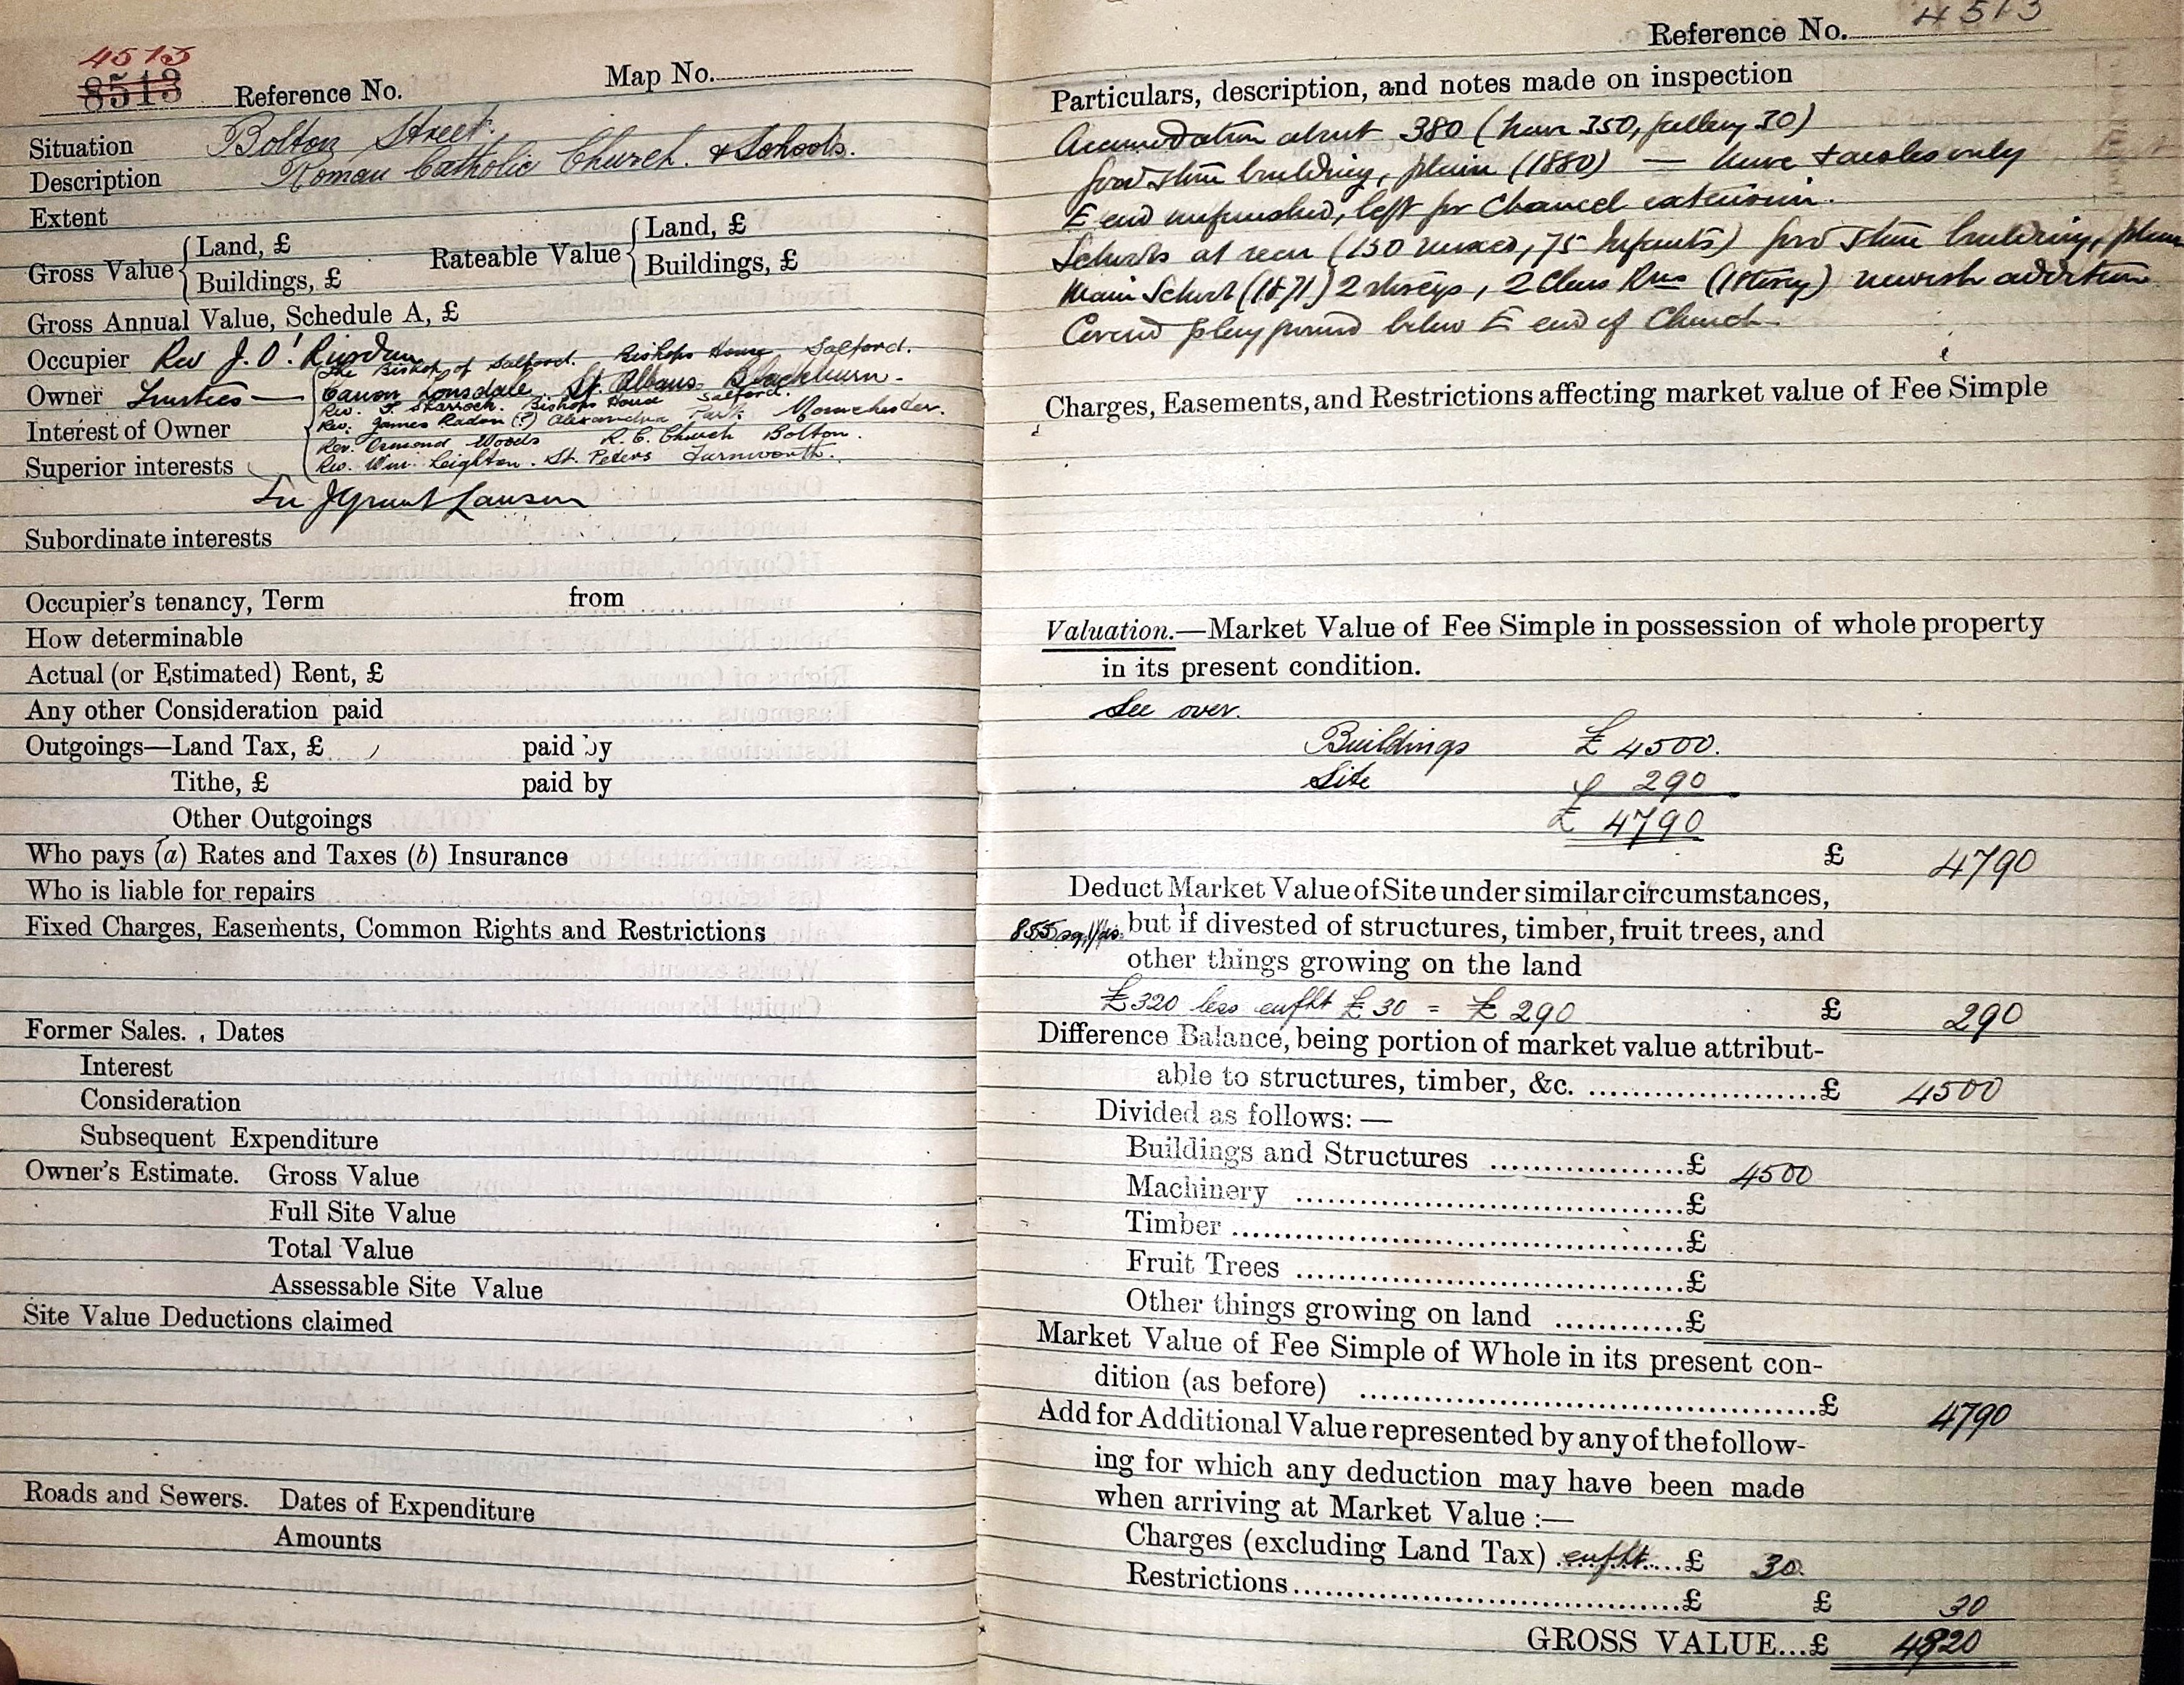 4513
8513 Reference No. Map No.
Situation Bolton Street.
Description Roman Catholic Church. & Schools.
Extent
Gross Value { Land, £ Rateable Value { Land, £
Buildings, £ Buildings, £
Gross Annual Value, Schedule A, £
Occupier Rev J. O'. Riordan
The Bishop of Salford. Bishops House Salford.
Owner Trustees — Canon Lonsdale. St. Albans Blackburn -
Rev. T. Sharrock. Bishops House Salford.
Rev. James Radon (?) Alexandra Park Manchester.
Interest of Owner
Rev. Ormond Woods R. C. Church Bolton.
Superior interests Rev. Wm. Leighton. St. Peters Farnworth.
Sir J Grant Lawson
Subordinate interests
Occupier's tenancy, Term from
How determinable
Actual (or Estimated) Rent, £
Any other Consideration paid
Outgoings—Land Tax, £ paid by
Tithe, £ paid by
Other Outgoings
Who pays (a) Rates and Taxes (b) Insurance
Who is liable for repairs
Fixed Charges, Easements, Common Rights and Restrictions
Former Sales. Dates
Interest
Consideration
Subsequent Expenditure
Owner's Estimate. Gross Value
Full Site Value
Total Value
Assessable Site Value
Site Value Deductions claimed
Roads and Sewers. Dates of Expenditure
Amounts
Reference No. 4513
Particulars, description, and notes made on inspection
Accomodation about 380 (nave 350, gallery 30)
good stone building, plain (1880) — nave & aisles only
E end unfinished, left for Chancel extension.
Schools at rear (150 mixed, 75 Infants) good stone building, plain
Main School (1871) 2 storeys, 2 Class Rms (1 storey) newish addition
Covered playground below E end of Church.
Charges, Easements, and Restrictions affecting market value of Fee Simple
Valuation.—Market Value of Fee Simple in possession of whole property
in its present condition.
See over.
Buildings £ 4500.
Site £ 290
£ 4790
£ 4790
Deduct Market Value of Site under similar circumstances,
855 sq. yds. but if divested of structures, timber, fruit trees, and
other things growing on the land
£320 less enfht £30 = £ 290 £ 290
Difference Balance, being portion of market value attribut-
able to structures, timber, &c. ....................£ 4500
Divided as follows:—
Buildings and Structures .................£ 4500
Machinery .................................£
Timber .......................................£
Fruit Trees .................................£
Other things growing on land ............£
Market Value of Fee Simple of Whole in its present con-
dition (as before) .......................................£ 4790
Add for Additional Value represented by any of the follow-
ing for which any deduction may have been made
when arriving at Market Value :—
Charges (excluding Land Tax) enfht.....£ 30.
Restrictions.................................£ £ 30
GROSS VALUE...£ 4820